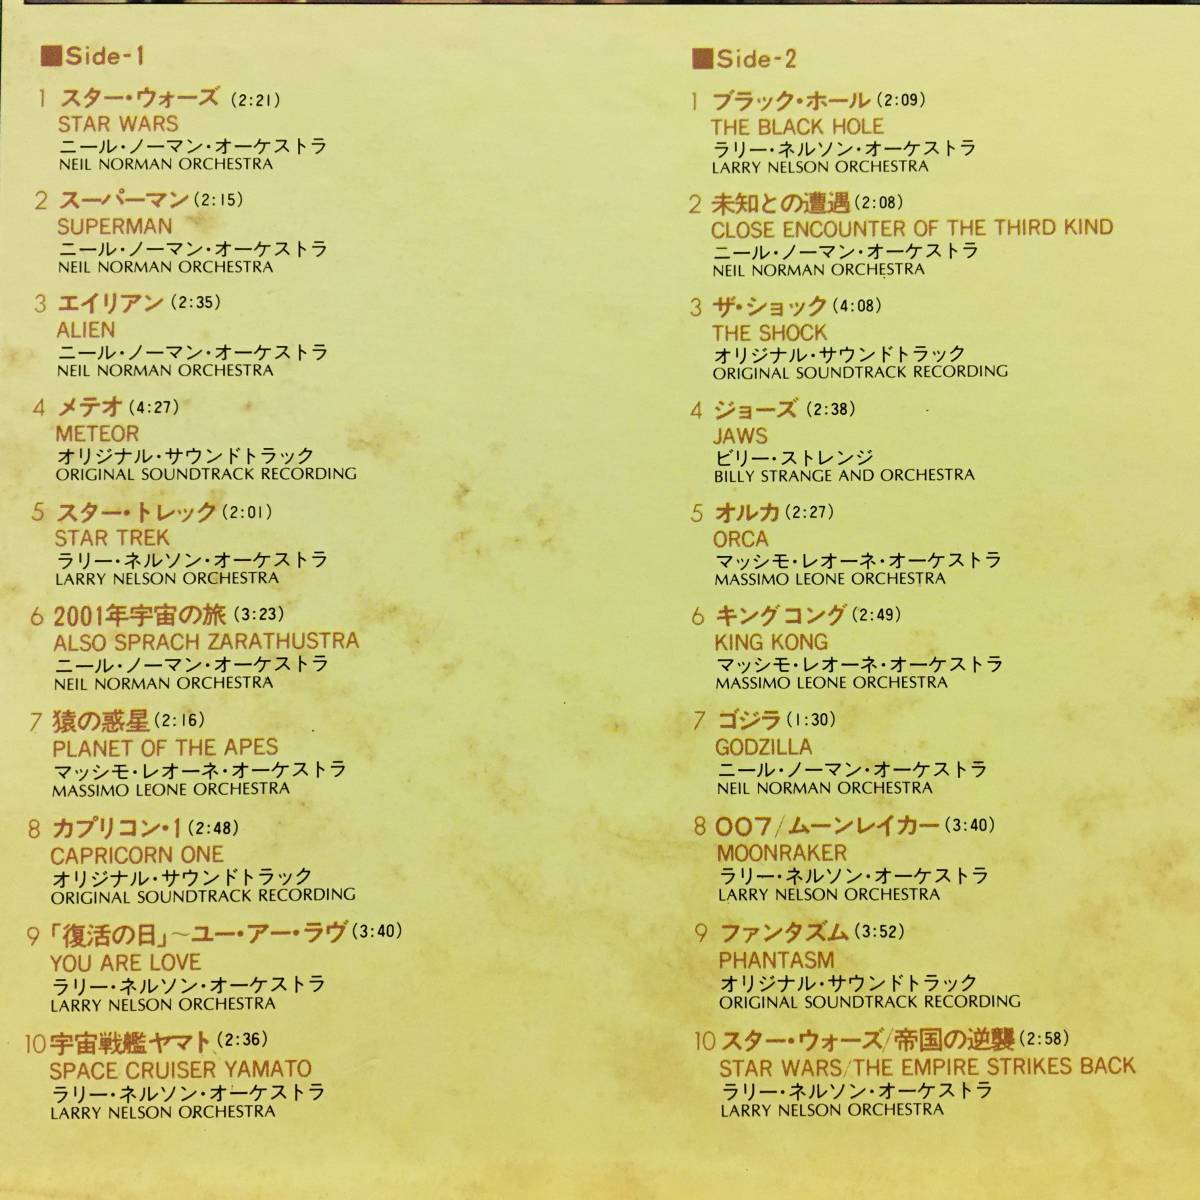 ■Side-1
1 スター・ウォーズ (2:21)
STAR WARS
ニール・ノーマン・オーケストラ
NEIL NORMAN ORCHESTRA
2 スーパーマン (2:15)
SUPERMAN
ニール・ノーマン・オーケストラ
NEIL NORMAN ORCHESTRA
3 エイリアン (2:35)
ALIEN
ニール・ノーマン・オーケストラ
NEIL NORMAN ORCHESTRA
4 メテオ (4:27)
METEOR
オリジナル・サウンドトラック
ORIGINAL SOUNDTRACK RECORDING
5 スター・トレック (2:01)
STAR TREK
ラリー・ネルソン・オーケストラ
LARRY NELSON ORCHESTRA
6 2001年宇宙の旅 (3:23)
ALSO SPRACH ZARATHUSTRA
ニール・ノーマン・オーケストラ
NEIL NORMAN ORCHESTRA
7 猿の惑星 (2:16)
PLANET OF THE APES
マッシモ・レオーネ・オーケストラ
MASSIMO LEONE ORCHESTRA
8 カプリコン・1 (2:48)
CAPRICORN ONE
オリジナル・サウンドトラック
ORIGINAL SOUNDTRACK RECORDING
9 「復活の日」～ユー・アー・ラヴ (3:40)
YOU ARE LOVE
ラリー・ネルソン・オーケストラ
LARRY NELSON ORCHESTRA
10 宇宙戦艦ヤマト (2:36)
SPACE CRUISER YAMATO
ラリー・ネルソン・オーケストラ
LARRY NELSON ORCHESTRA
■Side-2
1 ブラック・ホール (2:09)
THE BLACK HOLE
ラリー・ネルソン・オーケストラ
LARRY NELSON ORCHESTRA
2 未知との遭遇 (2:08)
CLOSE ENCOUNTER OF THE THIRD KIND
ニール・ノーマン・オーケストラ
NEIL NORMAN ORCHESTRA
3 ザ・ショック (4:08)
THE SHOCK
オリジナル・サウンドトラック
ORIGINAL SOUNDTRACK RECORDING
4 ジョーズ (2:38)
JAWS
ビリー・ストレンジ
BILLY STRANGE AND ORCHESTRA
5 オルカ (2:27)
ORCA
マッシモ・レオーネ・オーケストラ
MASSIMO LEONE ORCHESTRA
6 キングコング (2:49)
KING KONG
マッシモ・レオーネ・オーケストラ
MASSIMO LEONE ORCHESTRA
7 ゴジラ (1:30)
GODZILLA
ニール・ノーマン・オーケストラ
NEIL NORMAN ORCHESTRA
8 007/ムーンレイカー (3:40)
MOONRAKER
ラリー・ネルソン・オーケストラ
LARRY NELSON ORCHESTRA
9 ファンタズム (3:52)
PHANTASM
オリジナル・サウンドトラック
ORIGINAL SOUNDTRACK RECORDING
10 スター・ウォーズ/帝国の逆襲 (2:58)
STAR WARS/THE EMPIRE STRIKES BACK
ラリー・ネルソン・オーケストラ
LARRY NELSON ORCHESTRA